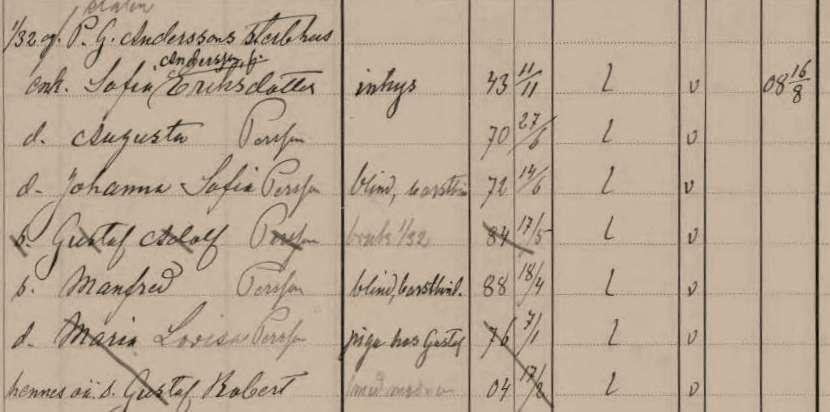 1/32 eg. P. G. Anderssons sterbhus
Andersson, f.
enk. Sofia Eriksdotter inhys 43 11/11 l v 08 16/8
d. Augusta Persson 70 27/6 l v
d. Johanna Sofia Persson blind, 72 14/6 l v
s. Gustaf Adolf Persson brukt 1/32 84 17/5 l v
s. Manfred Persson blind, 88 18/4 l v
d. Maria Lovisa Persson piga hos Gustaf 76 7/1 l v
hennes oä. s. Gustaf Robert 04 17/2 l v